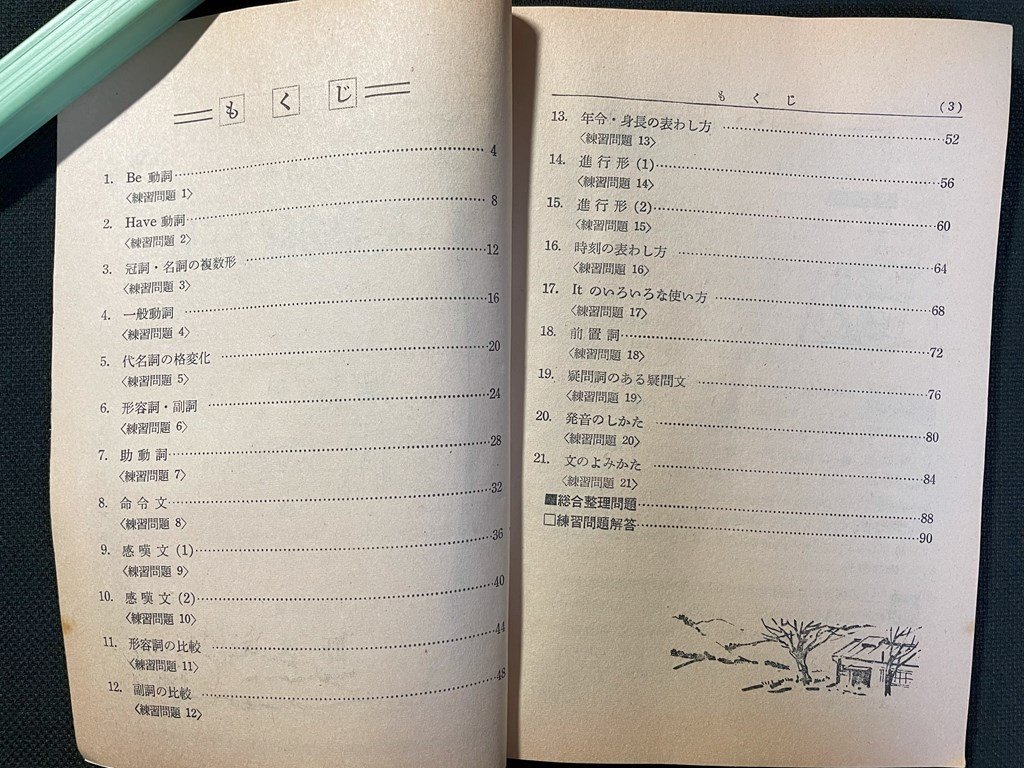 もくじ
1. Be 動詞 4
〈練習問題 1〉
2. Have 動詞 8
〈練習問題 2〉
3. 冠詞・名詞の複数形 12
〈練習問題 3〉
4. 一般動詞 16
〈練習問題 4〉
5. 代名詞の格変化 20
〈練習問題 5〉
6. 形容詞・副詞 24
〈練習問題 6〉
7. 助動詞 28
〈練習問題 7〉
8. 命令文 32
〈練習問題 8〉
9. 感嘆文 (1) 36
〈練習問題 9〉
10. 感嘆文 (2) 40
〈練習問題 10〉
11. 形容詞の比較 44
〈練習問題 11〉
12. 副詞の比較 48
〈練習問題 12〉
もくじ (3)
13. 年令・身長の表わし方 52
〈練習問題 13〉
14. 進行形 (1) 56
〈練習問題 14〉
15. 進行形 (2) 60
〈練習問題 15〉
16. 時刻の表わし方 64
〈練習問題 16〉
17. It のいろいろな使い方 68
〈練習問題 17〉
18. 前置詞 72
〈練習問題 18〉
19. 疑問詞のある疑問文 76
〈練習問題 19〉
20. 発音のしかた 80
〈練習問題 20〉
21. 文のよみかた 84
〈練習問題 21〉
■総合整理問題 88
□練習問題解答 90